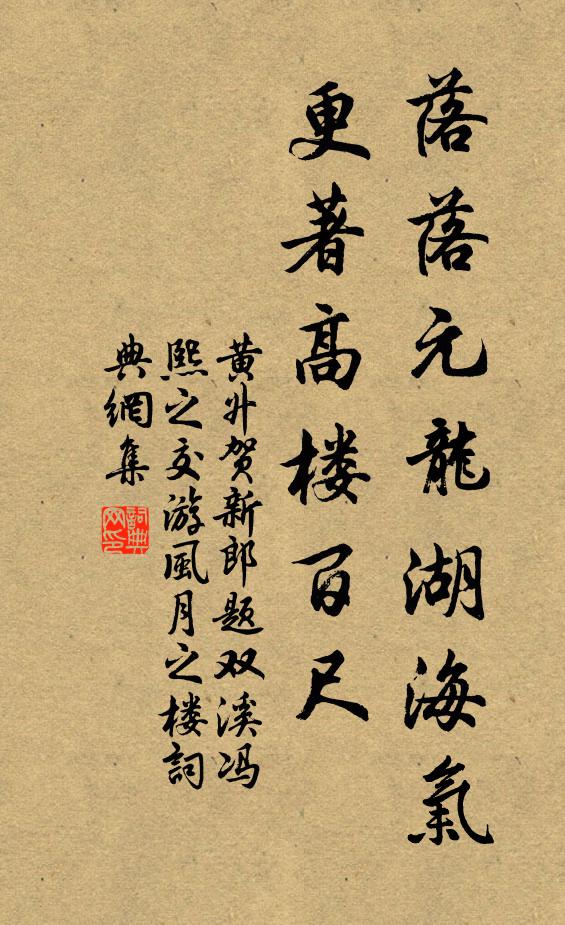 落落元龍湖海氣
更著高楼百尺
黄升贺新郎题双溪冯
熙之交游風月之楼詞
典網集
詞典網印